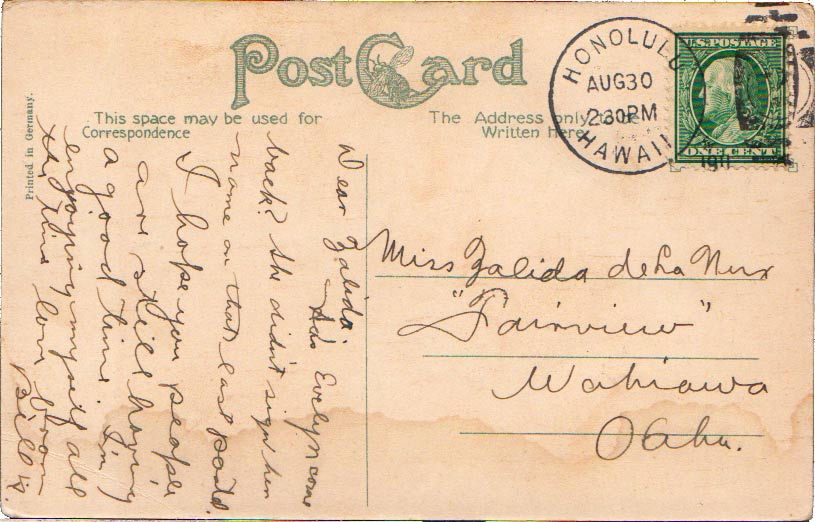 Post Card
This space may be used for
Correspondence
The Address only to be
Written here
Printed in Germany.
HONOLULU
AUG 30
230PM
HAWAII
1911
U.S. POSTAGE
ONE CENT
Miss Zalida de La Nux
"Fairview"
Wahiawa
Oahu.
Dear Zalida:
Has Evelyn come
back? She didn't sign her
name on that last postal.
I hope you people
are still having
a good time. I'm
enjoying myself all
the time love from